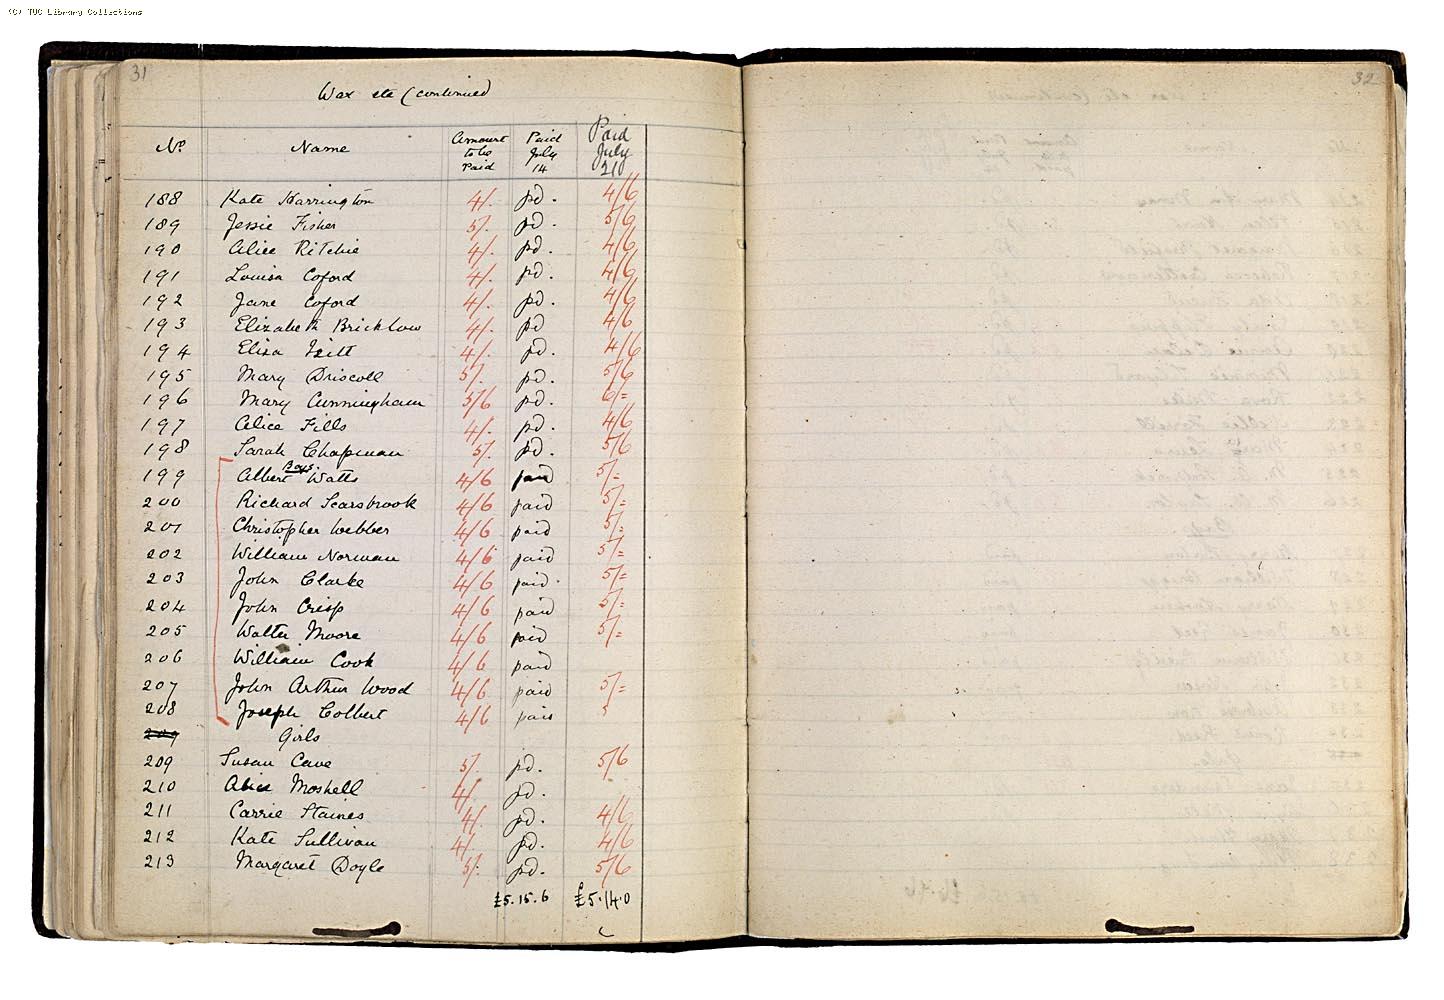 (C) TUC Library Collections
31
32
Wax etc (continued)
No Name Amount to be Paid Paid July 14 Paid July 21
188 Kate Harrington 4/. pd. 4/6
189 Jessie Fisher 5/. pd. 5/6
190 Alice Ritchie 4/. pd. 4/6
191 Louisa Coford 4/. pd. 4/6
192 Jane Coford 4/. pd. 4/6
193 Elizabeth Bricklow 4/. pd 4/6
194 Eliza 4/. pd. 4/6
195 Mary Driscoll 5/. pd. 5/6
196 Mary Cunningham 5/6 pd. 6/=
197 Alice Fills 4/. pd. 4/6
198 Sarah Chapman 5/. pd. 5/6
Boys.
199 Albert Watts 4/6 paid 5/=
200 Richard Scarsbrook 4/6 paid 5/=
201 Christopher Webber 4/6 paid 5/=
202 William Norman 4/6 paid 5/=
203 John Clarke 4/6 paid. 5/=
204 John Crisp 4/6 paid 5/=
205 Walter Moore 4/6 paid 5/=
206 William Cook 4/6 paid
207 John Arthur Wood 4/6 paid 5/=
208 Joseph Colbert 4/6 paid 5
209 Girls
209 Susan Cave 5/. pd. 5/6
210 Alice Moshell 4/. pd.
211 Carrie Staines 4/. pd. 4/6
212 Kate Sullivan 4/. pd. 4/6
213 Margaret Doyle 5/. pd. 5/6
£5.15.6 £5.14.0